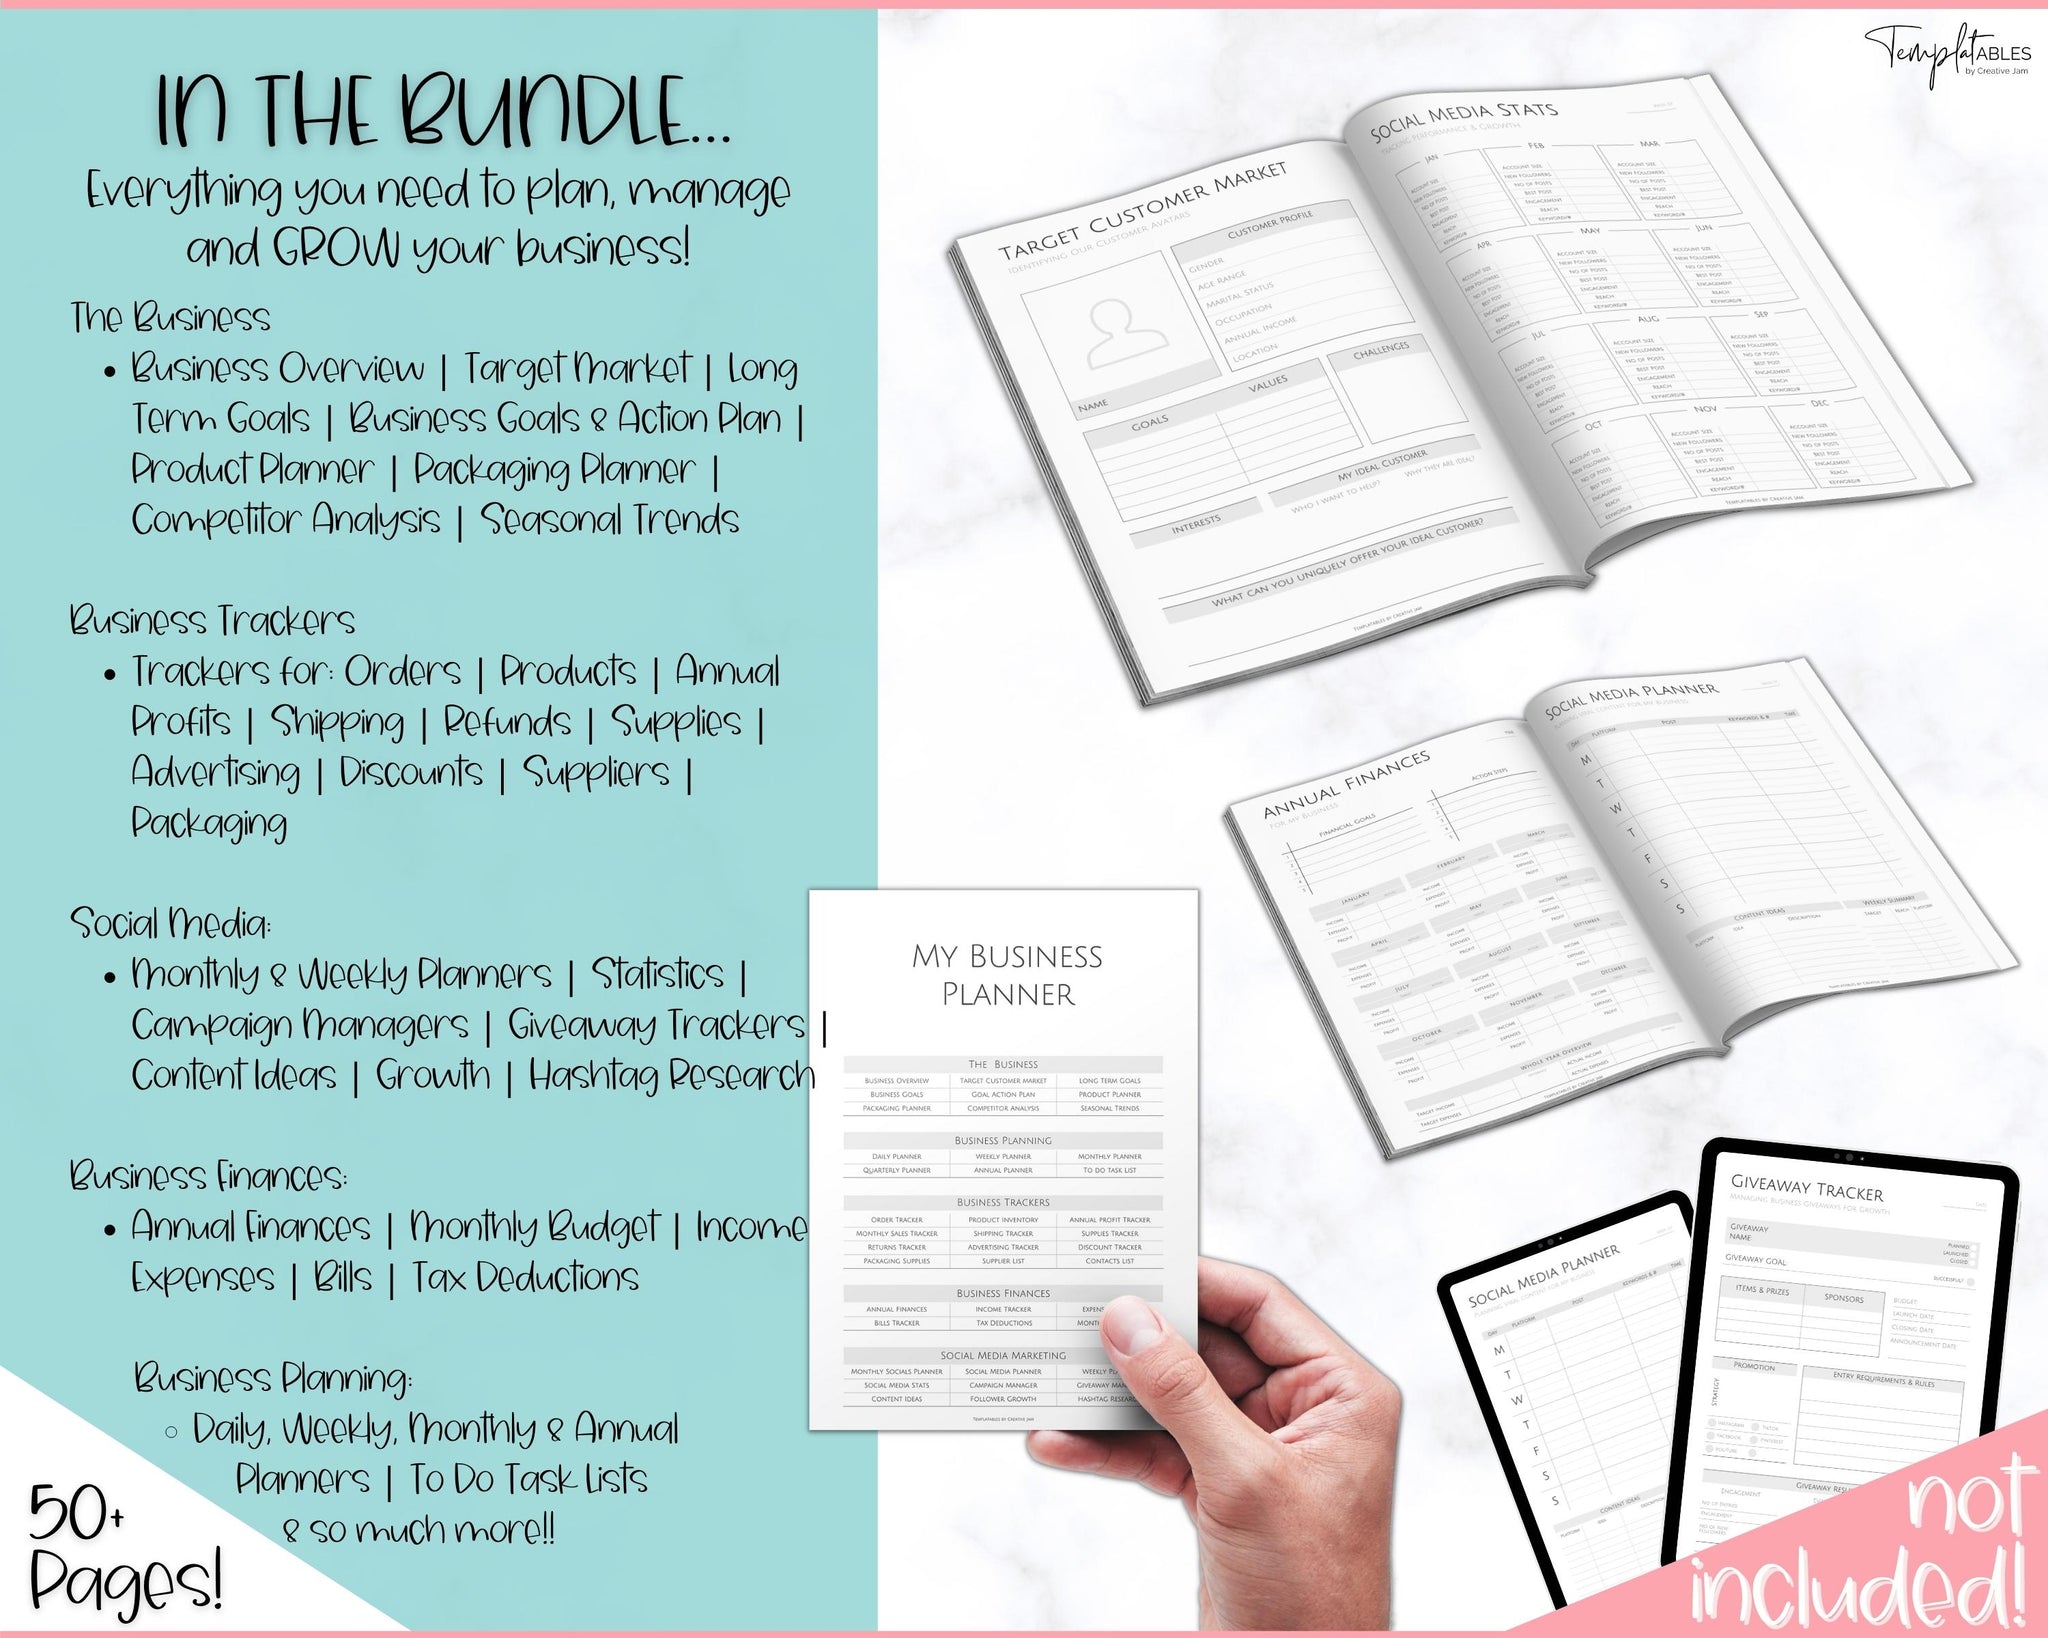 IN THE BUNDLE...
Everything you need to plan, manage
and GROW your business!
The Business
• Business Overview | Target Market | Long
Term Goals | Business Goals & Action Plan |
Product Planner | Packaging Planner |
Competitor Analysis | Seasonal Trends
Business Trackers
• Trackers for: Orders | Products | Annual
Profits | Shipping | Refunds | Supplies |
Advertising | Discounts | Suppliers |
Packaging
Social Media:
• Monthly & Weekly Planners | Statistics |
Campaign Managers | Giveaway Trackers |
Content Ideas | Growth | Hashtag Research
Business Finances:
• Annual Finances | Monthly Budget | Income
Expenses | Bills | Tax Deductions
Business Planning:
◦ Daily, Weekly, Monthly & Annual
Planners | To Do Task Lists
& so much more!!
50+
Pages!
TemplATABLES
by Creative Jam
TARGET CUSTOMER MARKET
IDENTIFYING OUR CUSTOMER AVATARS
CUSTOMER PROFILE
GENDER
AGE RANGE
MARITAL STATUS
OCCUPATION
ANNUAL INCOME
LOCATION
NAME
GOALS
VALUES
CHALLENGES
INTERESTS
MY IDEAL CUSTOMER
WHO I WANT TO HELP?
WHY THEY ARE IDEAL?
WHAT CAN YOU UNIQUELY OFFER YOUR IDEAL CUSTOMER?
TEMPLATABLES BY CREATIVE JAM
SOCIAL MEDIA STATS
TRACKING PERFORMANCE & GROWTH
JAN
FEB
MAR
ACCOUNT SIZE
NEW FOLLOWERS
NO OF POSTS
BEST POST
ENGAGEMENT
REACH
KEYWORD/#
APR
MAY
JUN
JUL
AUG
SEP
OCT
NOV
DEC
TEMPLATABLES BY CREATIVE JAM
ANNUAL FINANCES
FOR MY BUSINESS
FINANCIAL GOALS
ACTION STEPS
JANUARY
FEBRUARY
MARCH
INCOME
EXPENSES
PROFIT
APRIL
MAY
JUNE
JULY
AUGUST
SEPTEMBER
OCTOBER
NOVEMBER
DECEMBER
WHOLE YEAR OVERVIEW
TARGET INCOME
TARGET EXPENSES
ACTUAL INCOME
ACTUAL EXPENSES
TEMPLATABLES BY CREATIVE JAM
SOCIAL MEDIA PLANNER
PLANNING VIRAL CONTENT FOR MY BUSINESS
DAY PLATFORM POST KEYWORDS & # TIME
M
T
W
T
F
S
S
CONTENT IDEAS
WEEKLY SUMMARY
PLATFORM IDEA DESCRIPTION
TARGET REACH PLATFORM
TEMPLATABLES BY CREATIVE JAM
MY BUSINESS
PLANNER
THE BUSINESS
BUSINESS OVERVIEW TARGET CUSTOMER MARKET LONG TERM GOALS
BUSINESS GOALS GOAL ACTION PLAN PRODUCT PLANNER
PACKAGING PLANNER COMPETITOR ANALYSIS SEASONAL TRENDS
BUSINESS PLANNING
DAILY PLANNER WEEKLY PLANNER MONTHLY PLANNER
QUARTERLY PLANNER ANNUAL PLANNER TO DO TASK LIST
BUSINESS TRACKERS
ORDER TRACKER PRODUCT INVENTORY ANNUAL PROFIT TRACKER
MONTHLY SALES TRACKER SHIPPING TRACKER SUPPLIES TRACKER
RETURNS TRACKER ADVERTISING TRACKER DISCOUNT TRACKER
PACKAGING SUPPLIES SUPPLIER LIST CONTACTS LIST
BUSINESS FINANCES
ANNUAL FINANCES INCOME TRACKER EXPENS
BILLS TRACKER TAX DEDUCTIONS MONTH
SOCIAL MEDIA MARKETING
MONTHLY SOCIALS PLANNER SOCIAL MEDIA PLANNER WEEKLY PL
SOCIAL MEDIA STATS CAMPAIGN MANAGER GIVEAWAY MAN
CONTENT IDEAS FOLLOWER GROWTH HASHTAG RESEAR
TEMPLATABLES BY CREATIVE JAM
SOCIAL MEDIA PLANNER
PLANNING VIRAL CONTENT FOR MY BUSINESS
DAY PLATFORM POST KEYWORDS & # TIME
M
T
W
T
F
S
S
CONTENT IDEAS
PLATFORM IDEA DESCRIPTION
GIVEAWAY TRACKER
MANAGING BUSINESS GIVEAWAYS FOR GROWTH
DATE
GIVEAWAY
NAME
PLANNED
LAUNCHED
CLOSED
GIVEAWAY GOAL
SUCCESSFUL?
ITEMS & PRIZES
SPONSORS
BUDGET
LAUNCH DATE
CLOSING DATE
ANNOUNCEMENT DATE
PROMOTION
ENTRY REQUIREMENTS & RULES
STRATEGY
INSTAGRAM TIKTOK
FACEBOOK PINTEREST
YOUTUBE
GIVEAWAY RESU
ENGAGEMENT
NO OF ENTRIES
ENGAGEMENT
NO OF NEW
FOLLOWERS
not
included!